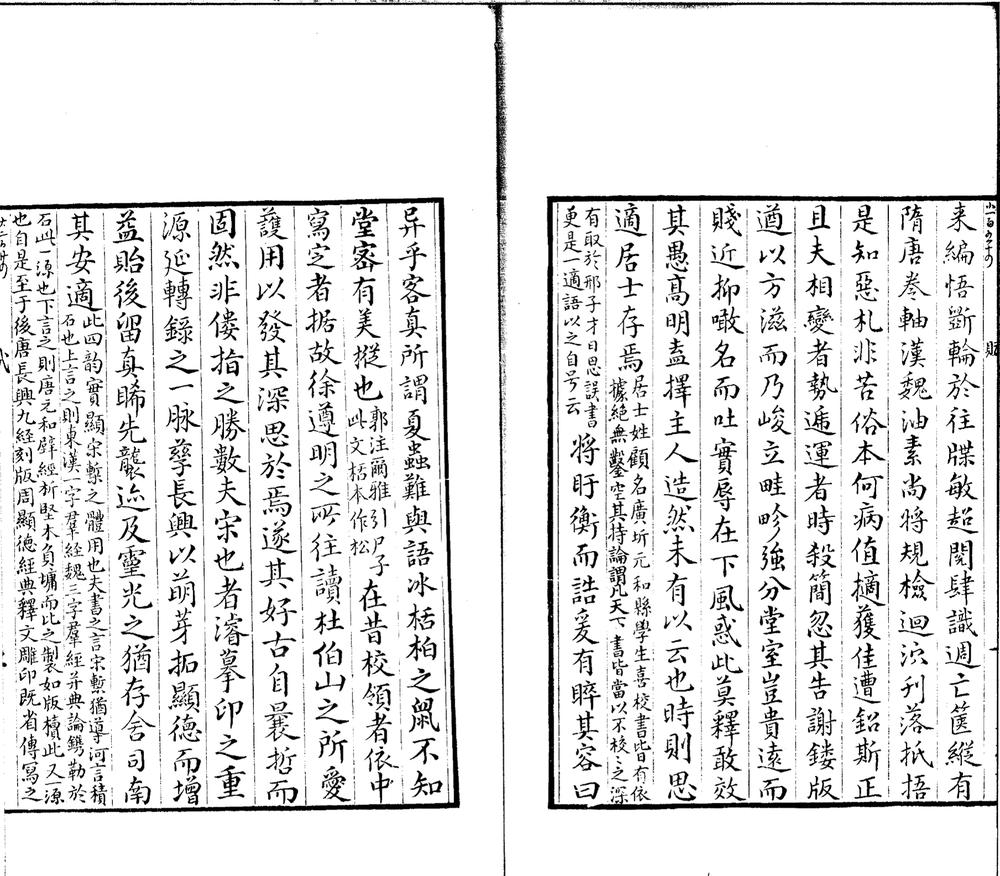 来編悟斷輪於往牒敏超閱肆識週亡篋縱有
隋唐卷軸漢魏油素尚將規檢迴泬刊落抵捂
是知惡札非苦俗本何病值擿獲佳遭鉛斯正
且夫相變者勢遞運者時殺簡忽其告謝鏤版
遒以方滋而乃峻立畦畛強分堂室豈貴遠而
賤近抑噉名而吐實辱在下風惑此莫釋敢效
其愚高明盍擇主人造然未有以云也時則思
適居士存焉居士姓顧名廣圻元和縣學生喜校書皆有依
據絕無鑿空其持論謂凡天下書皆當以不校校之深
有取於邢子才日思誤書
更是一適語以之自号云將盱衡而誥爰有睟其容曰
异乎客真所謂夏蟲難與語冰栝柏之鼠不知
堂密有美摐也郭注爾雅引尸子
此文栝本作松在昔校領者依中
寫定者据故徐遵明之所往讀杜伯山之所愛
護用以發其深思於焉遂其好古自曩哲而
固然非僂指之勝數夫宋也者濬摹印之重
源延轉錄之一脉孳長興以萌芽拓顯德而增
益貽後留真睎先襲迹及靈光之猶存舍司南
其安適此四韵實顯宋槧之體用也夫書之言宋槧猶導河言積
石也上言之則東漢一字羣經魏三字羣經并典論鐫勒於
石此一源也下言之則唐元和壁經析堅木負墉而比之製如版櫝此又一源
也自是至于後唐長興九經刻版周顯德經典釋文雕印既省傳寫之